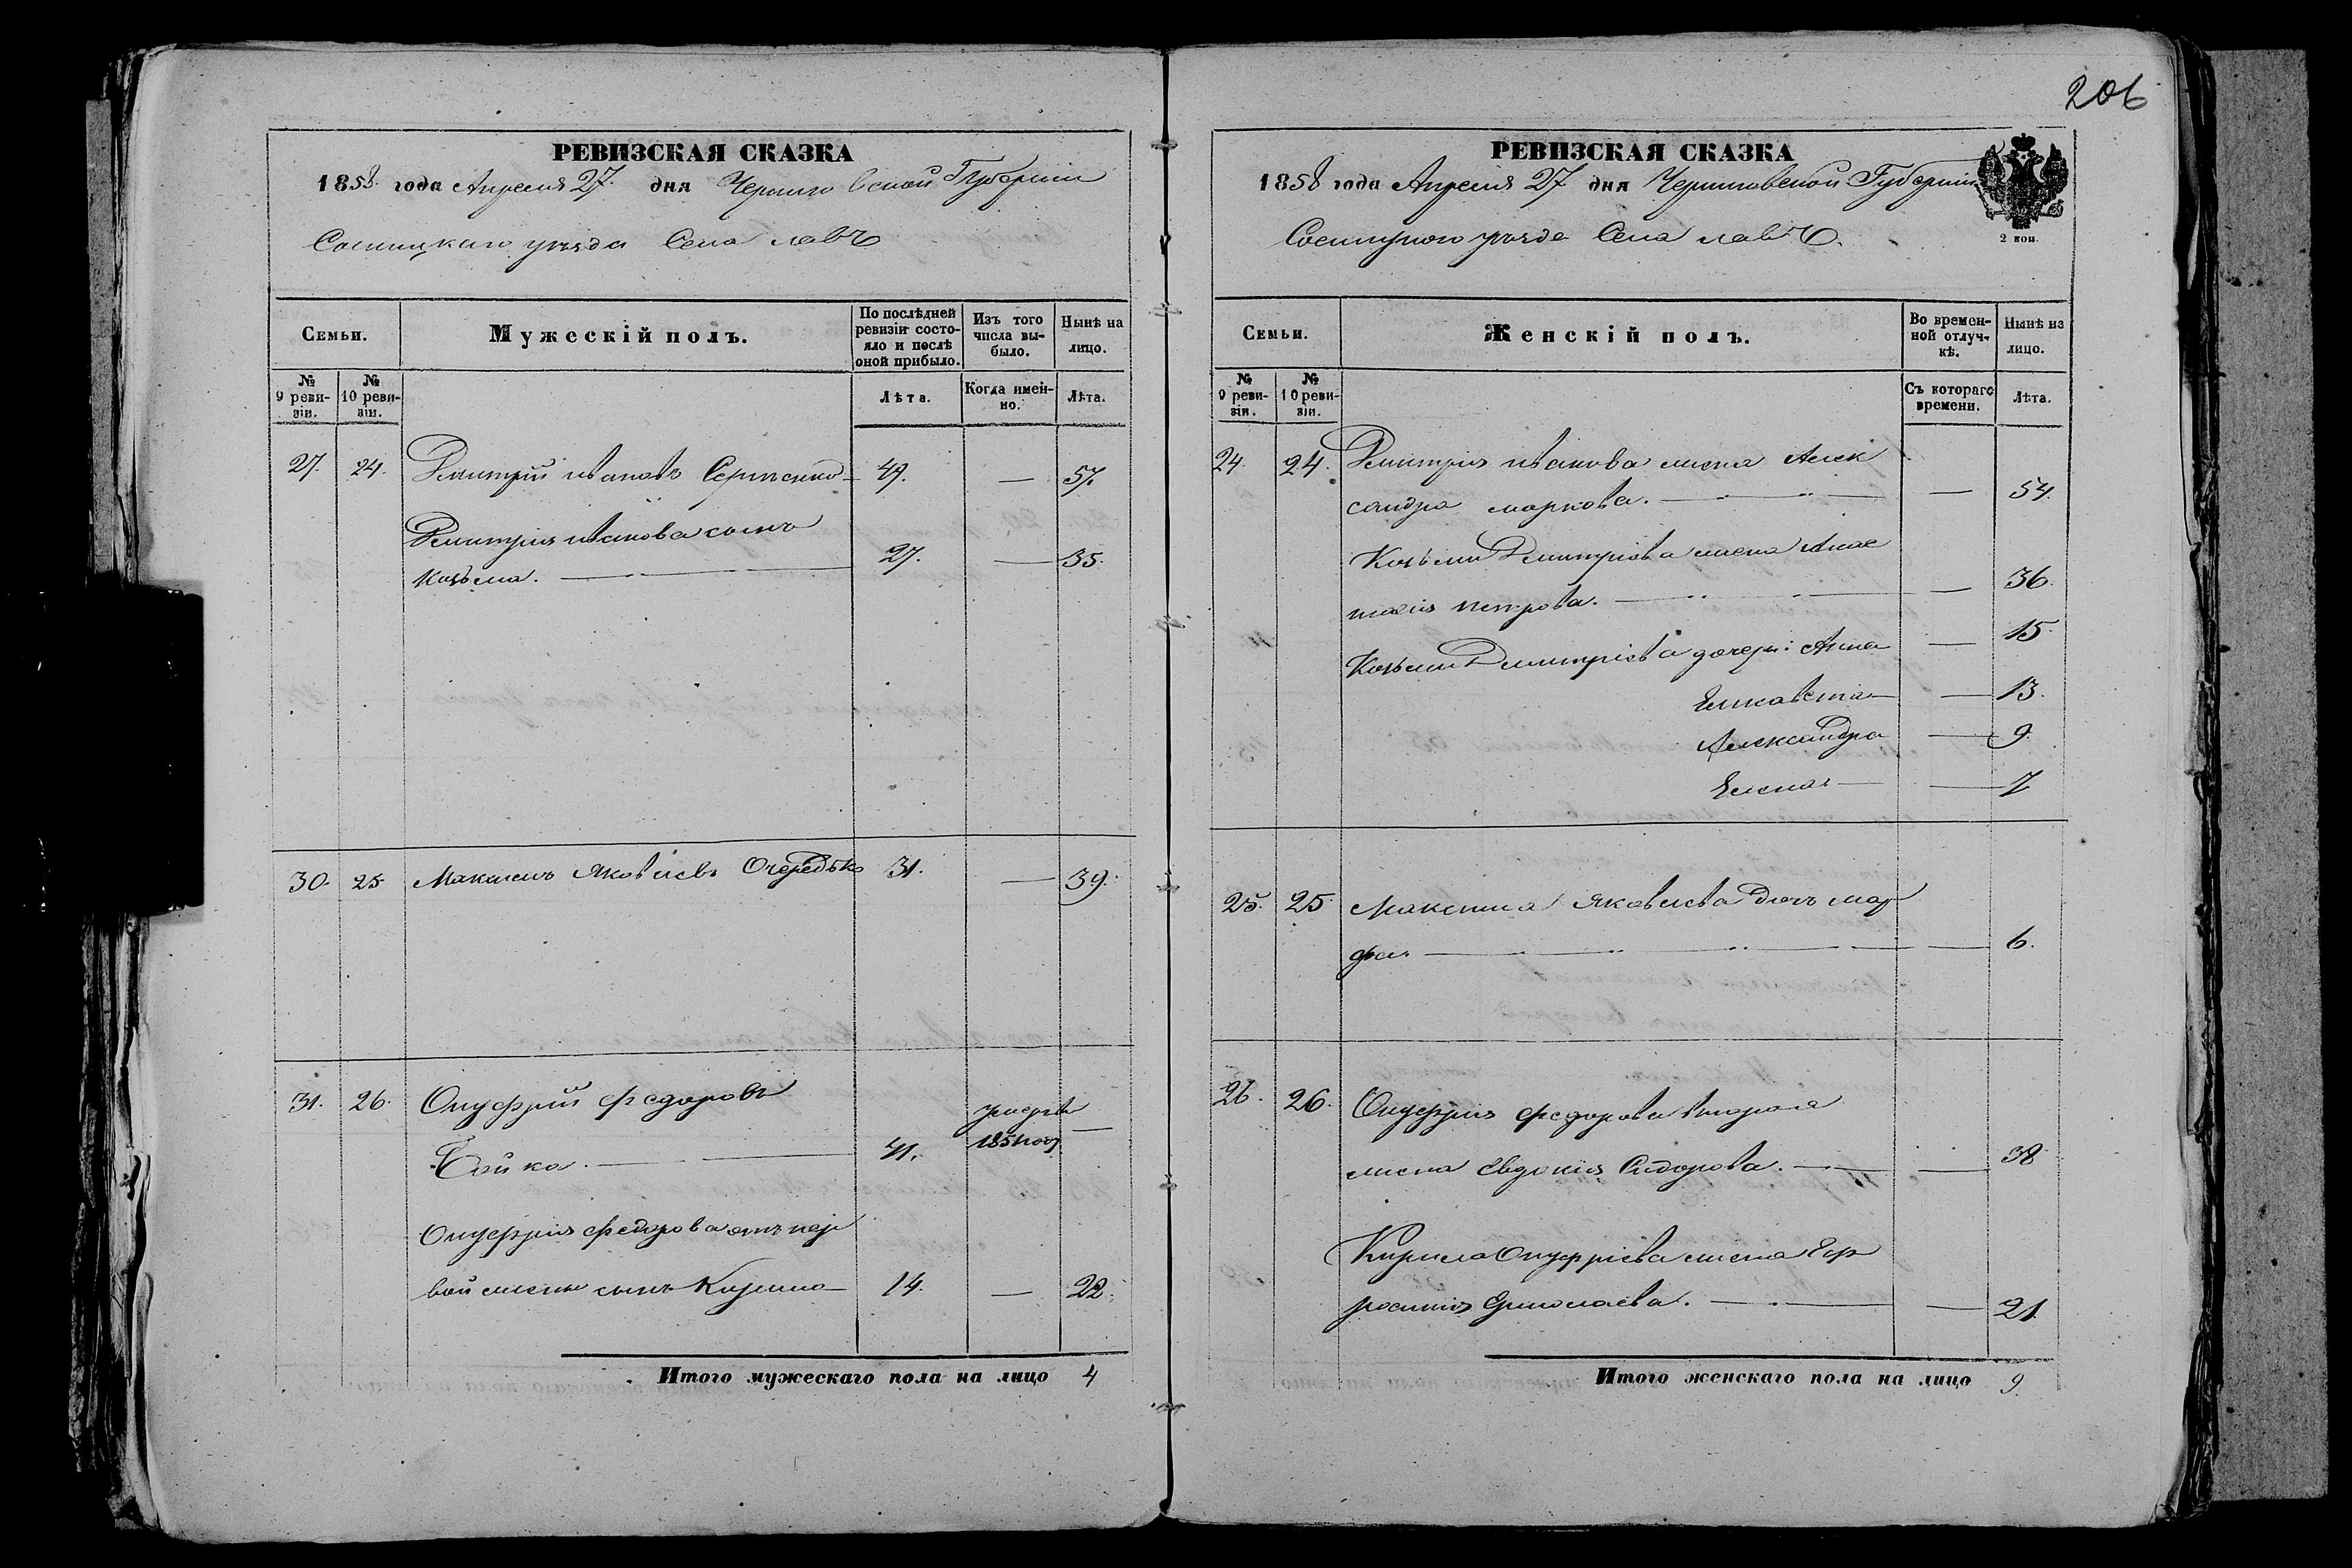 206
РЕВИЗСКАЯ СКАЗКА
1858. года Апреля 27. дня Черниговской Губернии
Сосницкаго уезда Села лавъ
Семьи.
Мужескій полъ.
По послѣдней ревизіи состояло и послѣ оной прибыло.
Изъ того числа выбыло.
Нынѣ на лицо.
№ 9 ревизіи.
№ 10 ревизіи.
Лѣта.
Когда именно.
Лѣта.
27. 24. Дмитрій ивановъ Сергиенко 49. — 57.
Дмитрія иванова сынъ
козьма. — 27. — 35.
30. 25 Максимъ Яковлевъ Очередько 31. — 39.
31. 26. Онуфрій федоровъ
Бойко. — 41. умеръ 1851 году —
Онуфрія федорова отъ пер
вой жены сынъ Кирило 14. — 22.
Итого мужескаго пола на лицо 4
РЕВИЗСКАЯ СКАЗКА
1858 года Апреля 27 дня Черниговской Губернии
2 коп.
Сосницкого уезда Села лавъ.
Семьи.
Женскій полъ.
Во временной отлучкѣ.
Нынѣ на лицо.
№ 9 ревизіи.
№ 10 ревизіи.
Съ котораго времени.
Лѣта.
24. 24. Дмитрия иванова жена Алек
сандра маркова. — — 54.
Козьми Дмитриева жена Анас
тасія петрова. — — 36.
Козьми Дмитріева дочери: Анна — 15.
Елисавета — — 13.
Александра — 9.
Елена — — 7
25. 25. Максима Яковлева дочь мар
фа — — 6.
26. 26. Онуфрія федорова вторая
жена Евдокия Сидорова. — — 38
Кирила Онуфріева жена Еф
росинія Ермолаева. — — 21
Итого женскаго пола на лицо 9.